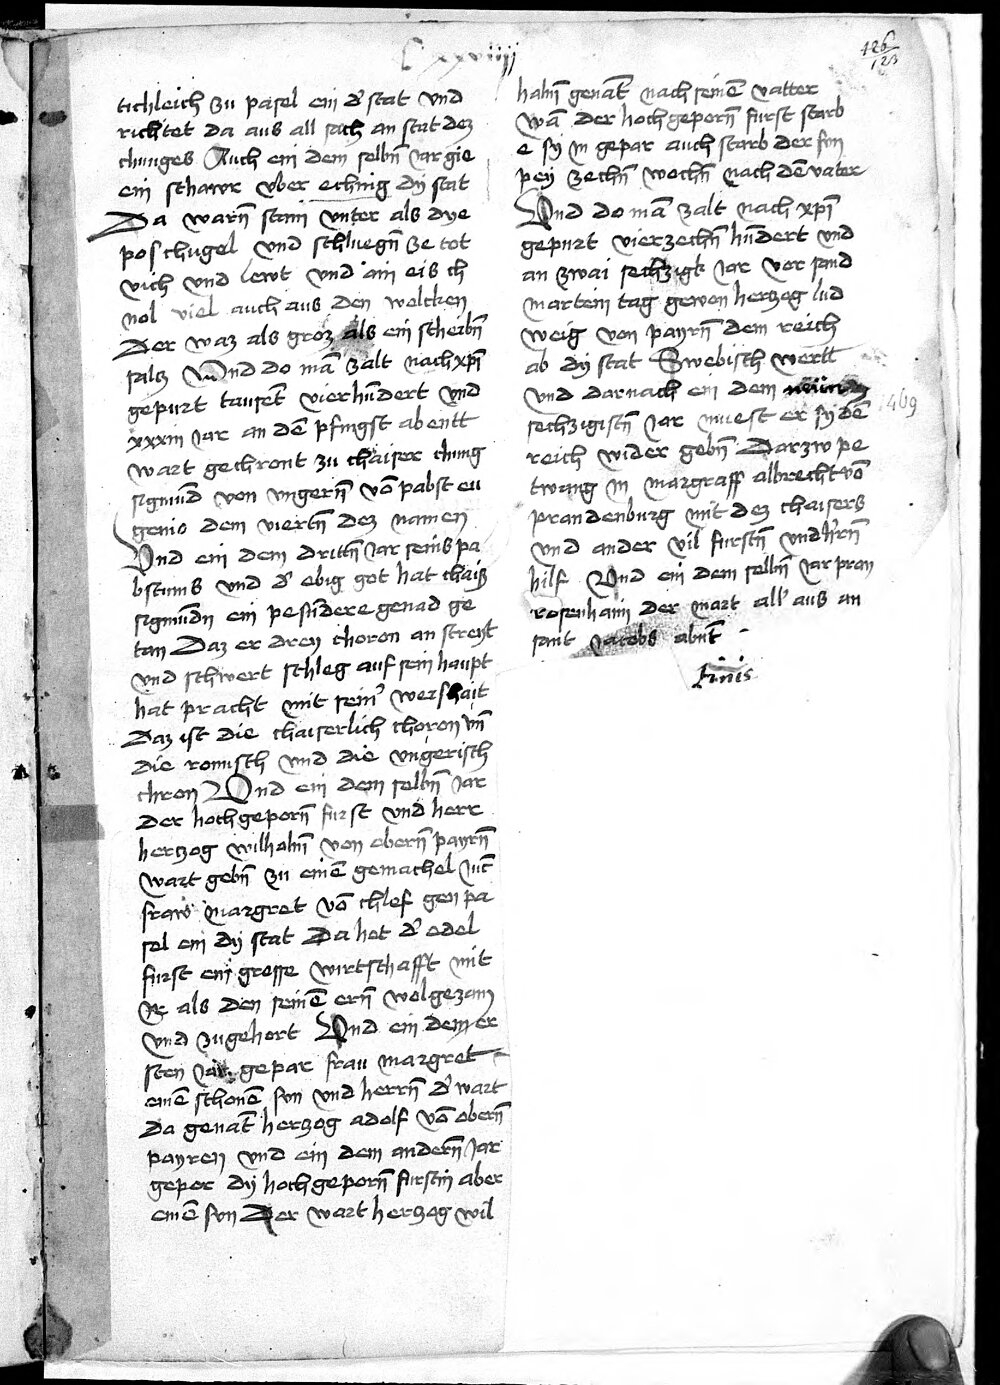 Cxxviiij
126
123
tichleich zu pasel ein d' stat vnd
richtet da aus all sach an stat dez
chunges Auch ein dem selbñ Jar gie
ein schawr vber eching dy stat
Da warñ stain vnter als dye
poschugel vnd schluegñ ze tot
vich vnd lewt vnd ain eis ch
nol viel auch aus den wolcken
Der waz als groz als ein scheibñ
salz Vnd do mā zalt nach xpī
gepurt tausēt vierhūdert vnd
xxxiii Jar an dē pfingst abentt
wart gechront zu chaiser chung
sigmūd von vngerñ vō pabst eu
genio dem viertñ dez namen
Vnd ein dem drittñ Jar seins pa
bstums vnd d' ebig got hat chais
sigmūdn ein pesūdere genad ge
tan Daz er drey choron an streyt
vnd schwert schleg auf sein haupt
hat pracht mit sein' werschait
Daz ist die chaiserlich choron vñ
die romisch vnd die vngerisch
chron Vnd ein dem selbñ Jar
Der hochgeporñ furst vnd herr
herczog wilhalm von oberñ payrñ
wart gebñ zu einē gemachel Juc
fraw margret vō chlef gen pa
sel ein dy stat Da het d' edel
furst ein grosse wirtschafft mit
Jr als den seinē ern wolgezam
vnd zugehort Vnd ein dem er
sten Jar gepar frau margret
einē schonē sun vnd herrñ d' wart
da genāt herzog adolf vō oberñ
payren vnd ein dem anderñ Jar
gepor dy hochgeporñ furstin aber
einē sun Der wart herzog wil
halm genāt nach seinē vatter
wā der hochgeporñ furst starb
e sy in gepar auch starb der sun
pey zechñ wochñ nach dē vater
Vnd do mā zalt nach xpī
gepurt vierzechñ hūdert vnd
an zwai sechzigk Jar vor sand
martein tag gewon herzog lud
weig von payrñ dem reich
ab dy stat Swebisch wertt
vnd darnach ein dem neun
1469
sechzigistñ Jar muest er sy dē
reich wider gebñ Darzw pe
twang in margraff albrecht vō
prandenburg mit dez chaisers
vnd ander vil furstñ vnd h'rñ
hilf Vnd ein dem selbñ Jar pran
rosenhaim der mart all' aus an
sant Jacobs abnt
Finis